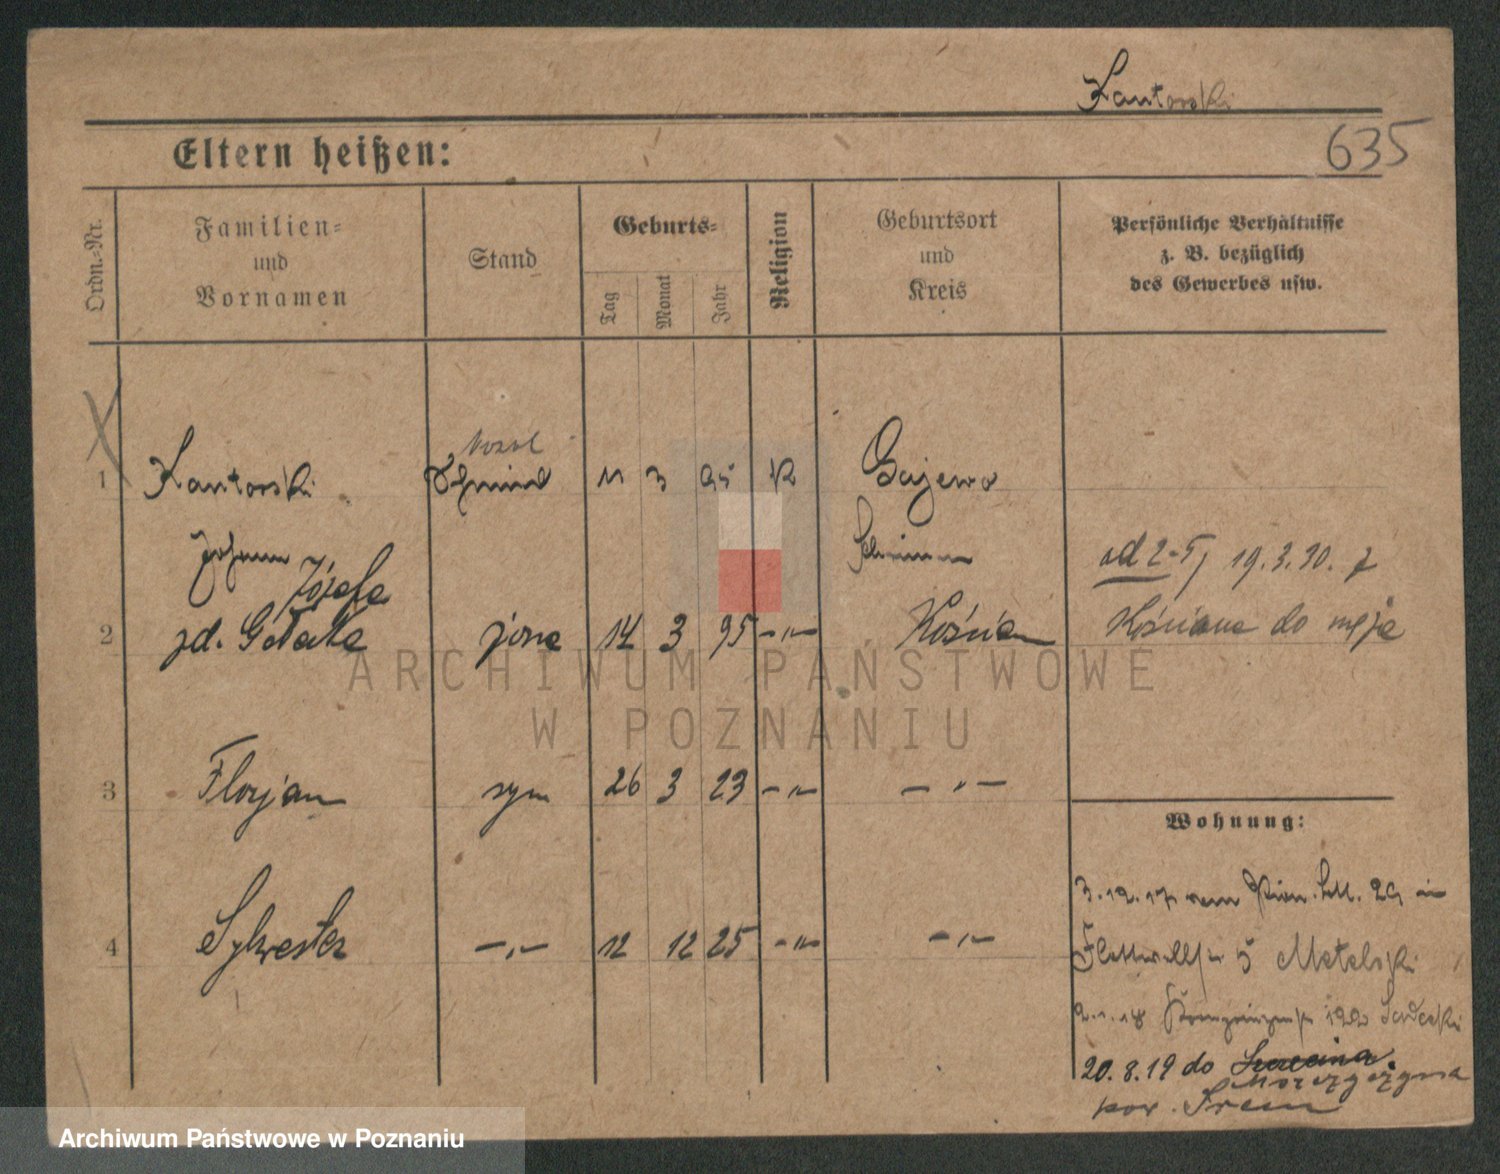 Kantorski
635
Eltern heißen:
Ordn.-Nr.
Familien- und Vornamen
Stand
Geburts-
Tag
Monat
Jahr
Religion
Geburtsort und Kreis
Persönliche Verhältnisse
z. B. bezüglich
des Gewerbes usw.
1 Kantorski 11 3 95 K Gajewo
Johann Schrimm
Józefa
2 zd. żona 14 3 95 -"- Kościan
od 2-5/ 19.3.30. z
Kościana do męża
3 Florjan syn 26 3 23 -"- -"-
4 Sylwester -"- 12 12 25 -"- -"-
Wohnung:
3.12.17 vom 29 in
Flottwellstr 5 Metelski
2.1.18 122 Sadecki
20.8.19 do
pow. Śrem
ARCHIWUM PAŃSTWOWE
W POZNANIU
Archiwum Państwowe w Poznaniu